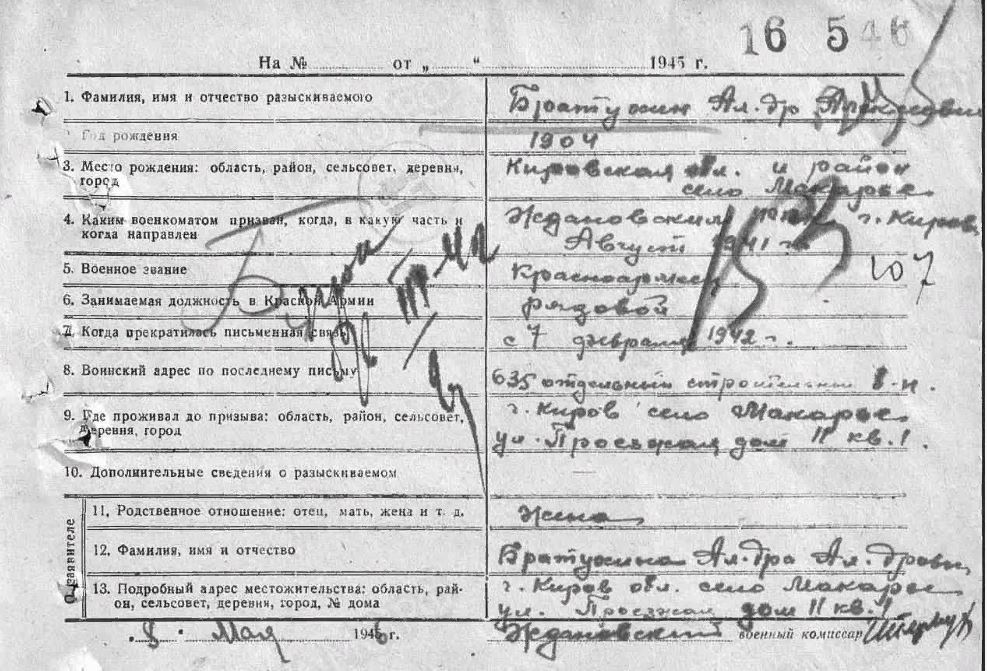 16 546
На № от „ “ 1945 г.
1. Фамилия, имя и отчество разыскиваемого Братухин Ал-др Алексеевич
Год рождения 1904
3. Место рождения: область, район, сельсовет, деревня, город Кировская обл. и район
село Макарье
4. Каким военкоматом призван, когда, в какую часть и когда направлен Ждановским г. Киров,
Август 1941 г.
5. Военное звание Красноармеец
107
6. Занимаемая должность в Красной Армии рядовой
7. Когда прекратилась письменная связь с 7 февраля 1942 г.
8. Воинский адрес по последнему письму 635 отдельный строительный б-н.
9. Где проживал до призыва: область, район, сельсовет, деревня, город г. Киров село Макарье
ул. Проезжая дом 11 кв. 1.
10. Дополнительные сведения о разыскиваемом
О заявителе
11. Родственное отношение: отец, мать, жена и т. д. жена
12. Фамилия, имя и отчество Братухина Ал-дра Ал-дровн.
13. Подробный адрес местожительства: область, рай-
он, сельсовет, деревня, город, № дома г. Киров обл. село Макарье
ул. Проезжая дом 11 кв. 1
8. Мая 1946 г. Ждановский военный комиссар